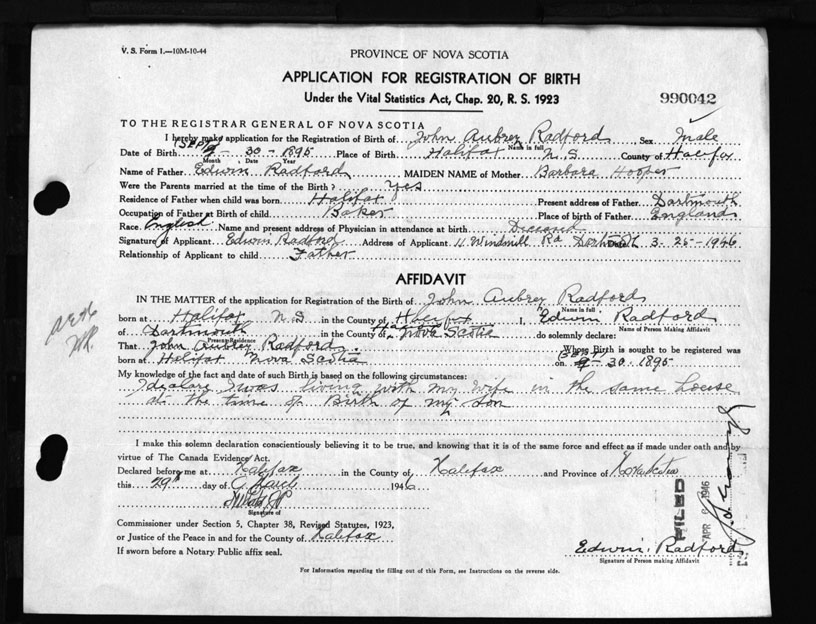 V. S. Form 1.—10M-10-44
PROVINCE OF NOVA SCOTIA
APPLICATION FOR REGISTRATION OF BIRTH
Under the Vital Statistics Act, Chap. 20, R. S. 1923
990042
TO THE REGISTRAR GENERAL OF NOVA SCOTIA
I hereby make application for the Registration of Birth of John Aubrey Radford Sex Male
Name in full
Date of Birth SEPT 9 - 30 - 1895 Place of Birth Halifax N S County of Halifax
Month , Date Year
Name of Father Edwin Radford MAIDEN NAME of Mother Barbara Hooper
Were the Parents married at the time of the Birth ? Yes
Residence of Father when child was born Halifax Present address of Father Dartmouth
Occupation of Father at Birth of child Baker Place of birth of Father England
Race English Name and present address of Physician in attendance at birth Deceased
Signature of Applicant Edwin Radford Address of Applicant 11 Windmill Rd Dartmouth Date 3-25-1946
Relationship of Applicant to child Father
AFFIDAVIT
IN THE MATTER of the application for Registration of the Birth of John Aubrey Radford
Name in full
born at Halifax N S in the County of Halifax I, Edwin Radford
Name of Person Making Affidavit
of Dartmouth in the County of Halifax Nova Scotia do solemnly declare:
Present Residence
That John Aubrey Radford Whose Birth is sought to be registered was
born at Halifax Nova Scotia on 9 - 30 - 1895
My knowledge of the fact and date of such Birth is based on the following circumstances:
I declare I was living with my wife in the same house
at the time of Birth of my son
I make this solemn declaration conscientiously believing it to be true, and knowing that it is of the same force and effect as if made under oath and by
virtue of The Canada Evidence Act.
Declared before me at Halifax in the County of Halifax and Province of Nova Scotia
this 29th day of March 1946
Signature of
Commissioner under Section 5, Chapter 38, Revised Statutes, 1923,
or Justice of the Peace in and for the County of Halifax
If sworn before a Notary Public affix seal.
FILED
APR 1946
Edwin Radford
Signature of Person making Affidavit
For Information regarding the filling out of this Form, see Instructions on the reverse side.